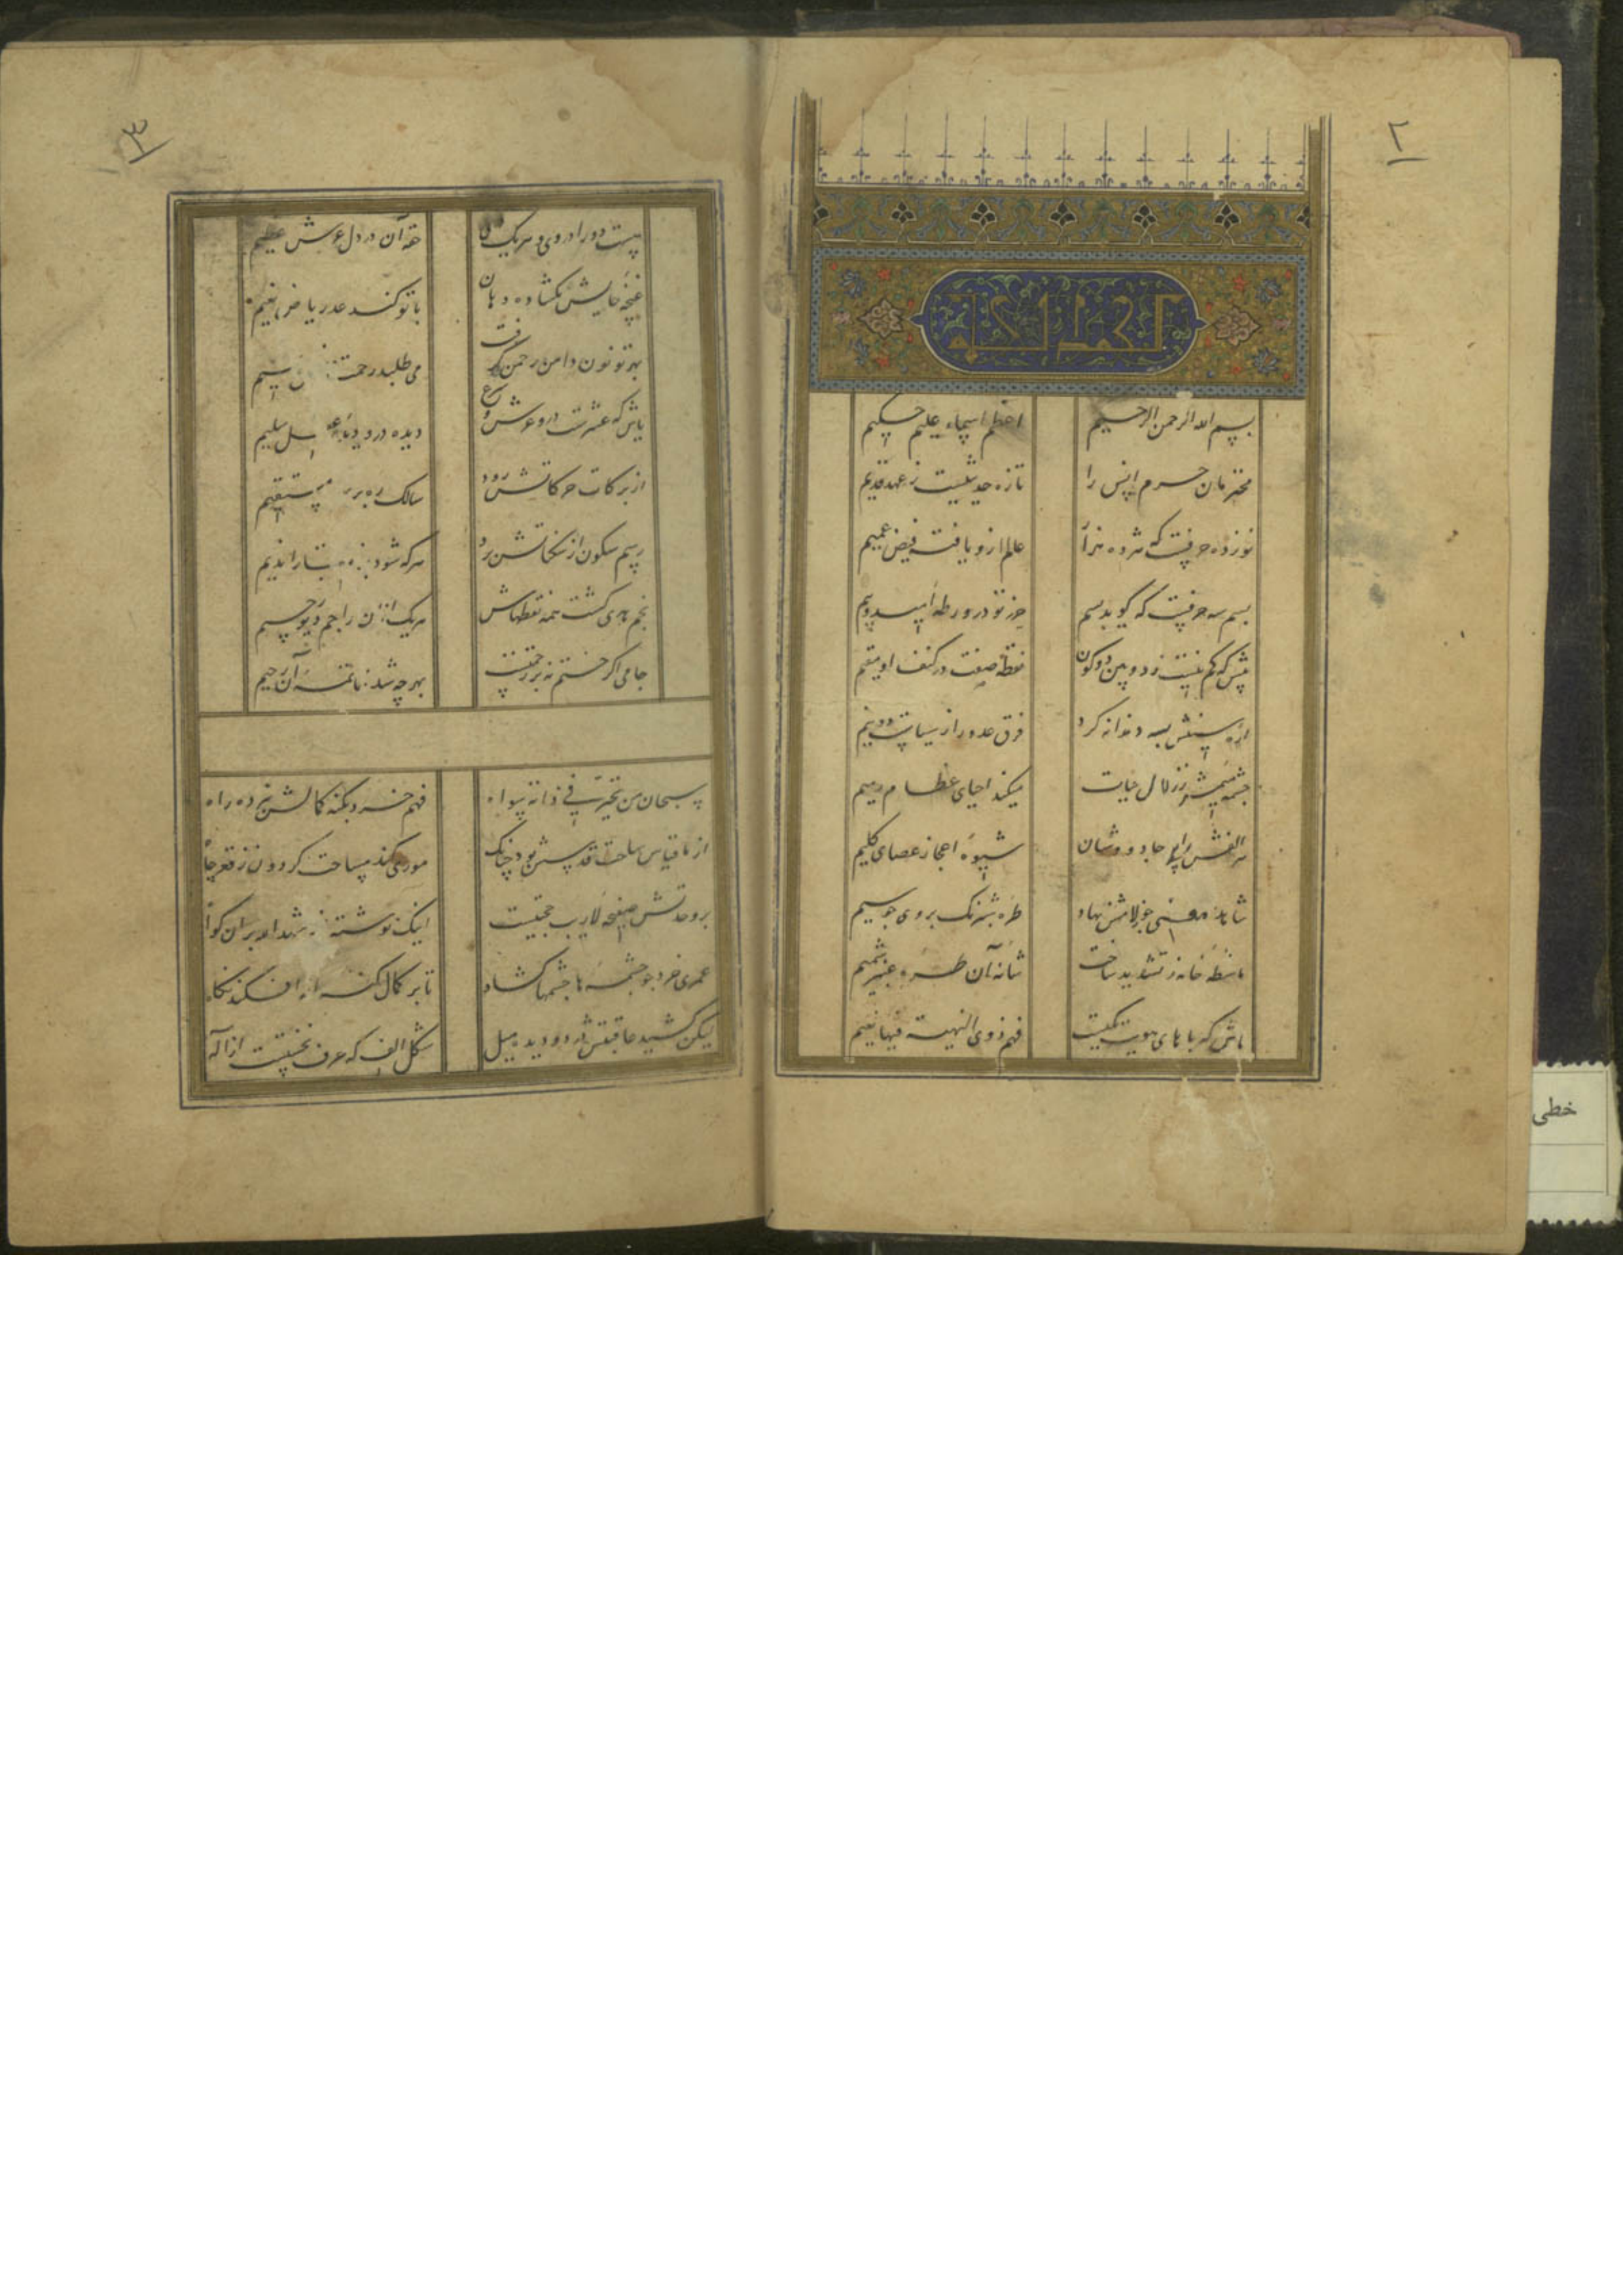 ٢
بسم الله الرحمن الرحیم
اعظم اسماء علیم حکیم
محترمان حرم انس را
تازه حدیثیست ز عهد قدیم
نوزده حرفست که هژده هزار
عالم ازو یافته فیض عمیم
بسم سه حرفست که گوید بسم
حرز تو در ورطه امید و بیم
نقطه صفت در کنف او مقیم
اره سینش بسه دندانه کرد
فرق عدو را ز سیاست دو نیم
چشمه میمش ز زلال حیات
میکند احیای عظام رمیم
شیوه اعجاز عصای کلیم
طره شبرنگ بروی چو سیم
شانه آن طره عنبر شمیم
هاش که با های هویت یکیست
فهم ذوی النهیة فیها یهیم
٣
هست دو را در وی و هر یک
حقه آن در دل عرش عظیم
غنچه حایش بگشاده دهان
با تو کند عد ریاض نعیم
بهر تو نون دامن رحمن گرفت
می طلبد رحمت
یاش که عشرست درو عرش و
دیده درو دیده
از برکات حرکاتش رود
سالک ره بر
مستقیم
رسم سکون از سکناتش برد
هر که شود
را ندیم
نجم هدی گشت همه نقطهاش
هر یک از آن راجم دیو رجیم
جامی اگر ختم نه بر رحمتست
بهر چه شد خاتمه آن رحیم
سبحان من تحیر فی ذاته سواه
فهم خرد بکنه کمالش نبرده راه
از ما قیاس ساحت قدسش بود چنانک
موری کند مساحت گردون ز قعر چاه
بر وحدتش صحیفه لاریب حجتیست
اینک نوشته از شهد الله بران گواه
عمری خرد چو چشمه ها چشمها گشاد
تا بر کمال کنه اله افکند نگاه
لیکن کشید عاقبتش در دو دیده میل
شکل الف که حرف نخستست از اله
خطی